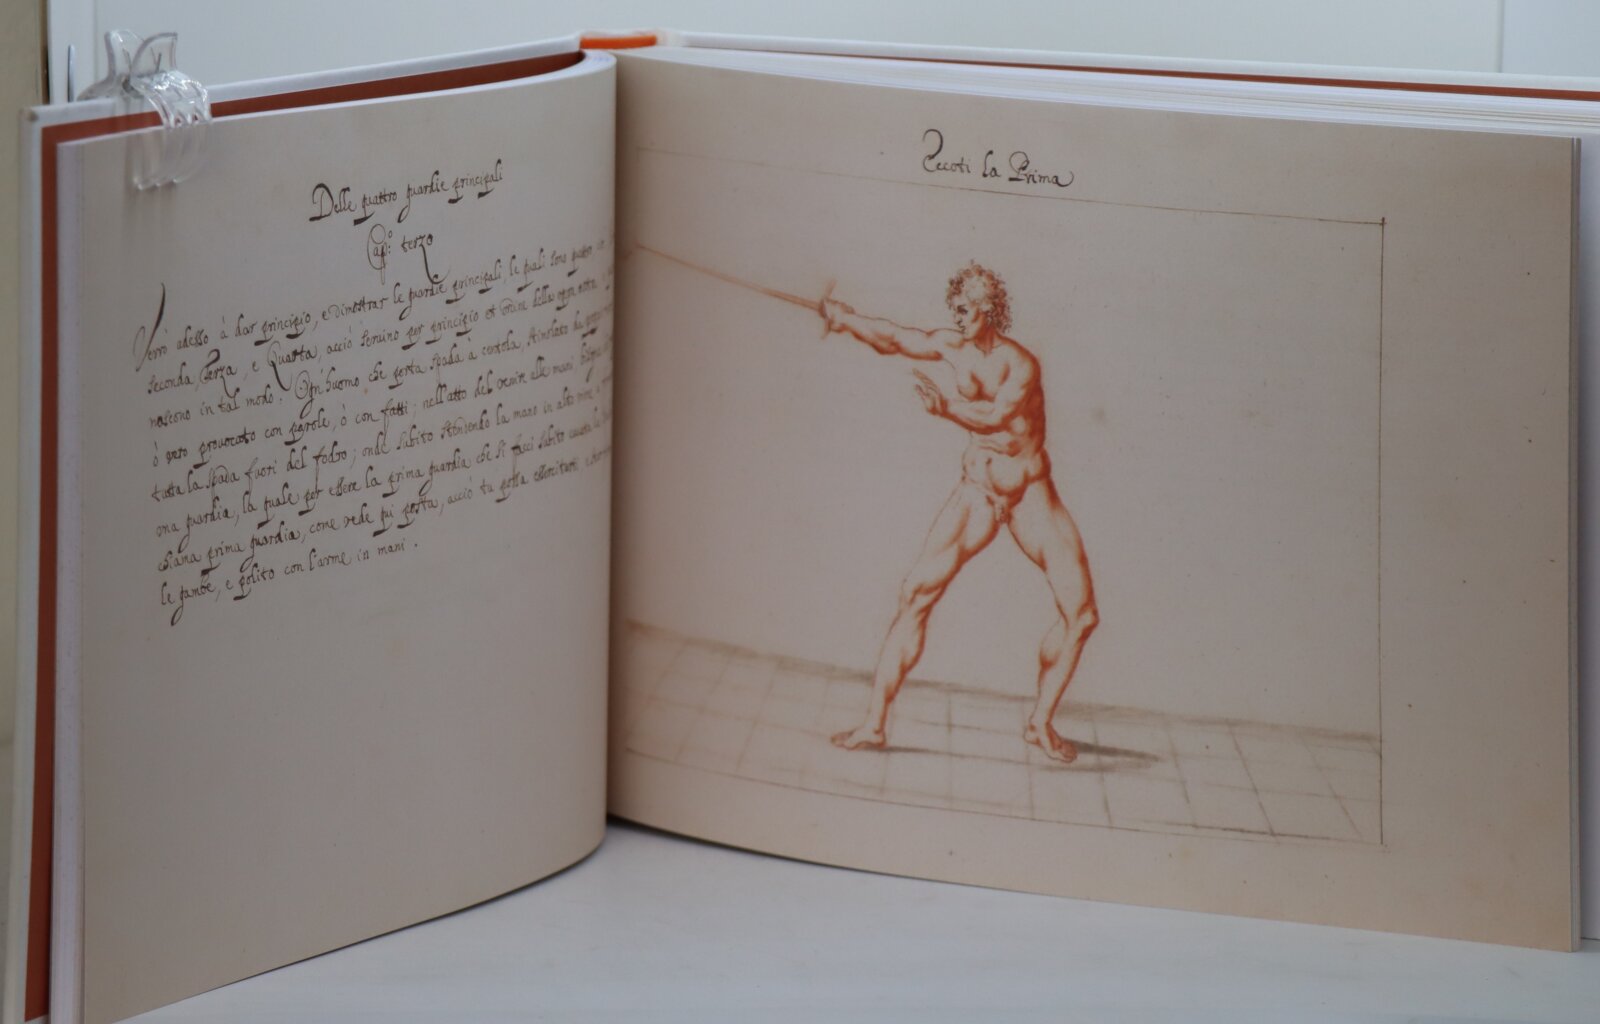 Delle quattro guardie principali
Cap.º terzo
Verrò adesso à dar principio, e dimostrar le guardie principali, le quali sono quattro
seconda, Terza, e Quarta, acciò seruino per principio et ordine della
nascono in tal modo. Ogn'huomo che porta spada à centola, stimolato da
ò vero prouocato con parole, ò con fatti; nell'atto del uenire alle mani,
tutta la spada fuori del fodro; onde subito stendendo la mano in alto
una guardia, la quale per essere la prima guardia che si facci subito
chiama prima guardia, come vede qui posta, acciò tu possa essercitarti
le gambe, e polito con l'arme in mani.
Eccoti la Prima